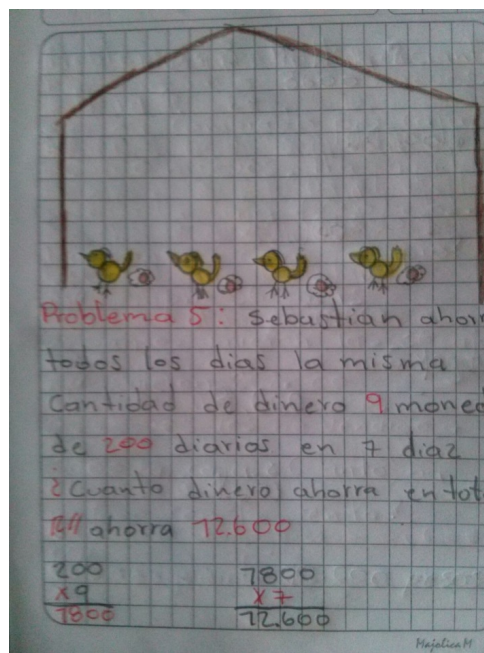 Problema 5: Sebastian ahor
todos los dias la misma
Cantidad de dinero 9 moned
de 200 diarios en 7 diaz
¿Cuanto dinero ahorra en tot
R// ahorra 12.600
200
x 9
1800
1800
x 7
12.600
Majolica M